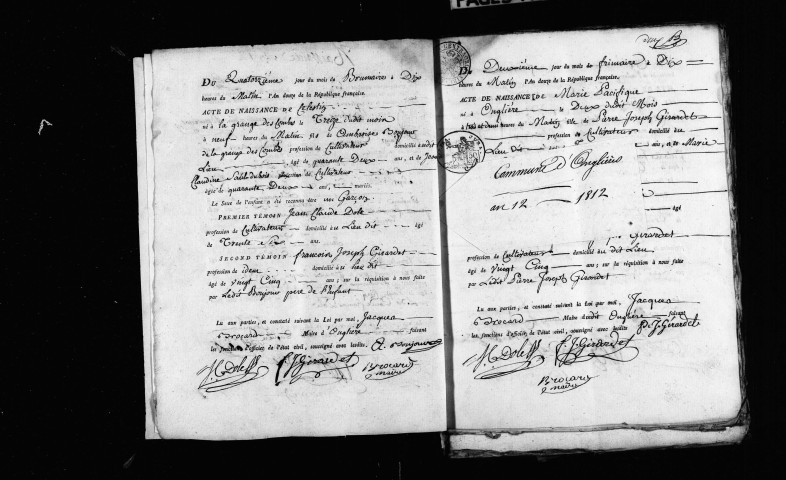 PAGES
Du Quatorzième jour du mois de Brumaire à Dix
heures du Matin l'An douze de la République françoise.
ACTE DE NAISSANCE DE Celestin
né à la grange des Combes le Treize dudit mois
à neuf heures du Matin fils de Bonjour
de la grange des Combes profession de Cultivateur domicilié
Lieu âgé de quarante Deux ans, et de
Claudine profession de Cultivateur
âgée de quarante Deux ans, mariés.
Le Sexe de l'enfant a été reconnu être un Garçon
PREMIER TÉMOIN Jean Claude Dole
profession de Cultivateur domicilié au Lieu dit âgé
de Trente ans.
SECOND TÉMOIN françois Joseph Girardet
profession de idem domicilié à Lieu dit
âgé de vingt Cinq ans; sur la réquisition à nous faite
par Ledit Bonjour père de l'Enfant
Lu aux parties, et constaté suivant la Loi par moi, Jacques
Brocard Maire d'Englière faisant
les fonctions d'officier de l'état civil, soussigné avec lesdits. Bonjour
J. C. Dole F. J. Girardet
Brocard
maire
Du Deuxième jour du mois de frimaire à Dix
heures du Matin l'An douze de la République françoise.
ACTE DE NAISSANCE DE Marie Pacifique
né à Englière le Deux dudit Mois
heures du Matin fille de Pierre Joseph Girardet
profession de Cultivateur domicilié au
Lieu dit ans, et de Marie
Commune d'Englière
an 12 — 1812
âgé
Girardet
profession de Cultivateur domicilié au dit Lieu
âgé de vingt Cinq ans; sur la réquisition à nous faite
par Ledit Pierre Joseph Girardet
Lu aux parties, et constaté suivant la Loi par moi, Jacques
Brocard Maire dudit Englière faisant
les fonctions d'officier de l'état civil, soussigné avec lesdits P. J. Girardet
J. C. Dole F. J. Girardet
Brocard
maire